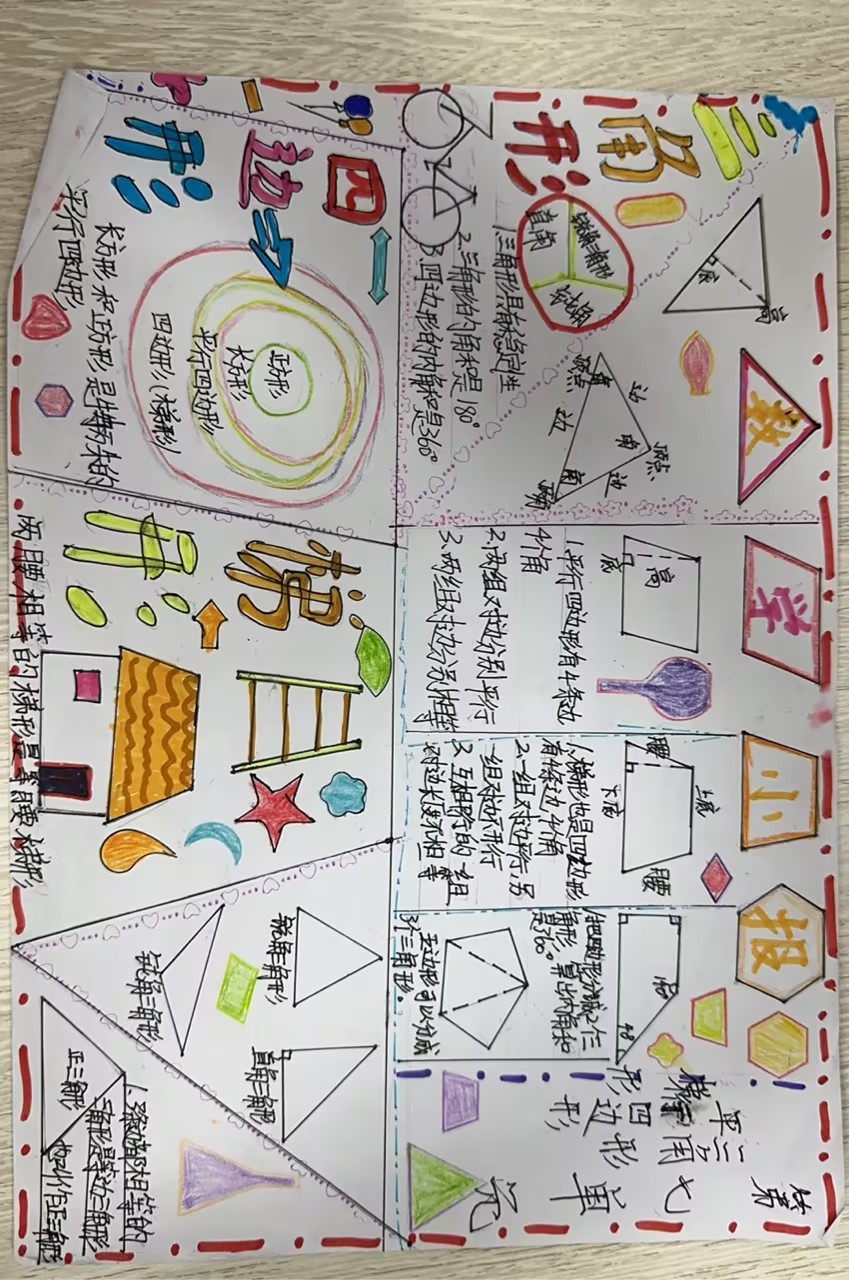 数学小报
三角形
高
底
锐角三角形
直角
顶点
角
边
边
角
顶点
边
角
顶点
1三角形具有稳定性
2.三角形的内角和是180°
3.四边形的内角和是360°
高
底
1.平行四边形有4条边
4个角
2.两组对边分别平行
3.两组对边分别相等
上底
腰
腰
下底
1.梯形也是四边形
有4条边4个角
2.一组对边平行,另
一组对边不平行
3.互相平行的一组
对边长度不相等
把四边形分成2个三
角形 算出内角和
是360°
五边形可以分成
3个三角形。
第
七
单
元
三角形
平行四边形
梯形
四边形
正方形
长方形
平行四边形
四边形(梯形)
长方形和正方形是特殊的
平行四边形
梯形
两腰相等的梯形是等腰梯形
锐角三角形
钝角三角形
直角三角形
正三角形
1.3条边都相等的
三角形是等边三角形
也叫作正三角形